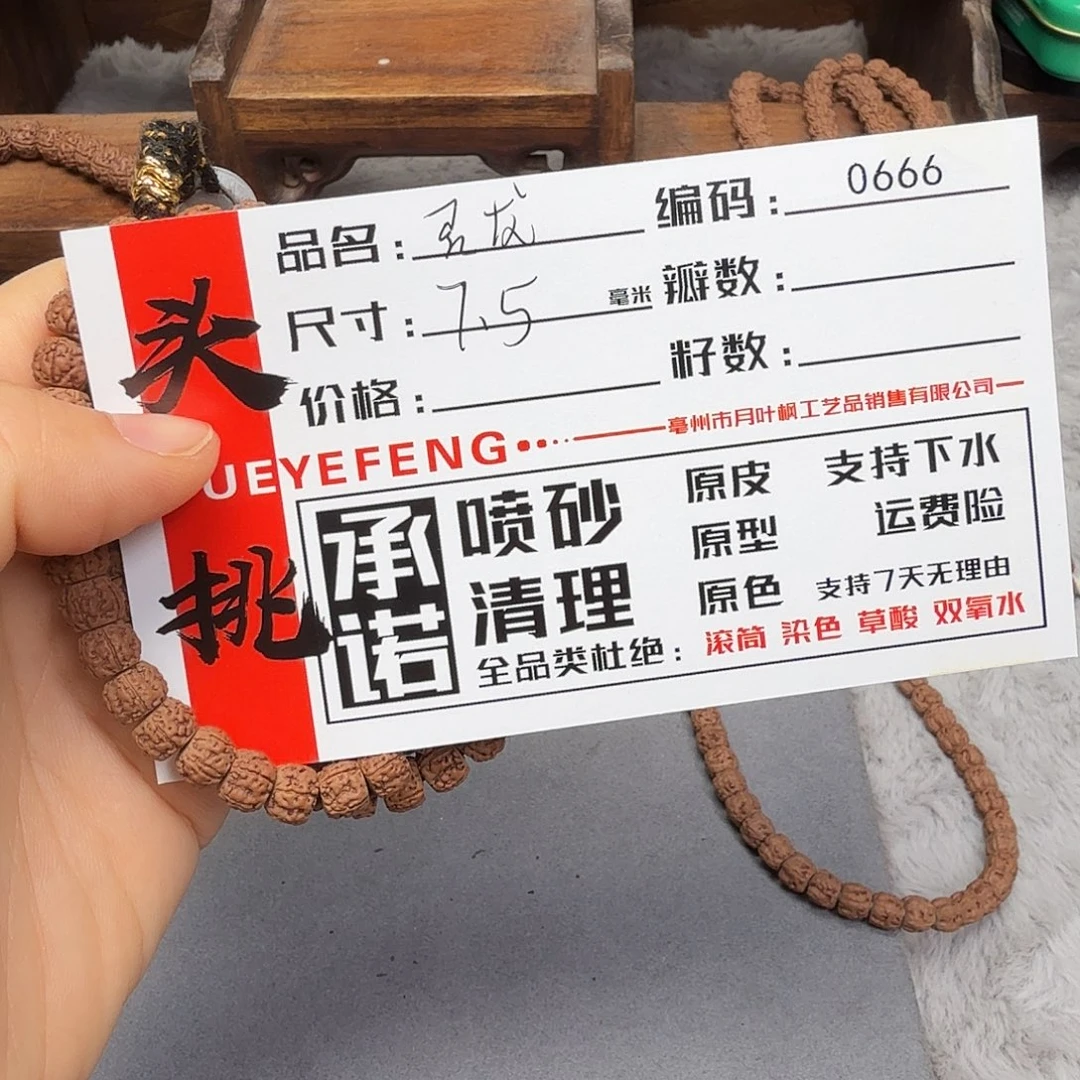 头挑
品名：
编码：0666
尺寸：7.5毫米
瓣数：
价格：
籽数：
UEYEFENG
亳州市月叶枫工艺品销售有限公司
承诺
喷砂
清理
原皮
原型
原色
支持下水
运费险
支持7天无理由
全品类杜绝：滚筒 染色 草酸 双氧水